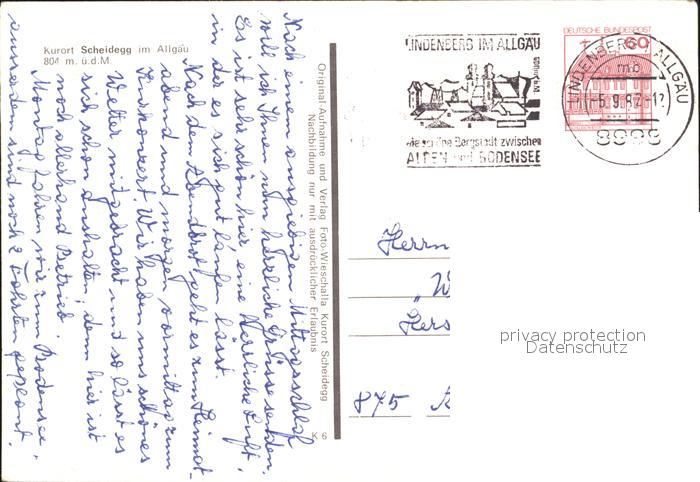 Kurort Scheidegg im Allgäu
804 m. ü.d.M.
Nach einem ausgiebigen Mittagsschlaf
will ich Ihnen nun herrliche Grüsse senden.
Es ist sehr schön hier eine herrliche Luft,
in der es sich gut laufen lässt.
Nach dem Abendbrot geht es zum Heimat-
abend und morgen vormittag zum
Kurkonzert. Wir haben uns schönes
Wetter mitgebracht und so lässt es
sich schon aushalten, denn hier ist
noch allerhand Betrieb.
Montag fahren wir zum Bodensee,
sind noch 2 Fahrten geplant.
Original-Aufnahme und Verlag Foto-Wieschalla Kurort Scheidegg
Nachbildung nur mit ausdrücklicher Erlaubnis
K 6
LINDENBERG IM ALLGÄU
die schöne Bergstadt zwischen
ALPEN und BODENSEE
DEUTSCHE BUNDESPOST
60
LINDENBERG I. ALLGÄU
mb
-5.9.87-17
8998
Herrn
„W
Hers
875
privacy protection
Datenschutz